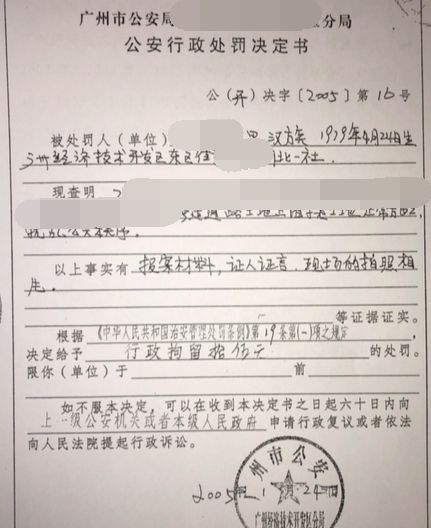 广州市公安局 分局
公安行政处罚决定书
公(开)决字〔2005〕第16号
被处罚人(单位) 汉族 1979年4月24日生
州经济技术开发区东区 北一社
现查明
扰乱公共秩序。
以上事实有 报案材料,证人证言,现场的拍照相
等证据证实。
根据《中华人民共和国治安管理处罚条例》第19条第(一)项之规定
决定给予 行政拘留拾伍天 的处罚。
限你(单位)于 前
如不服本决定,可以在收到本决定书之日起六十日内向
上一级公安机关或者本级人民政府 申请行政复议或者依法
向人民法院提起行政诉讼。
广州市公安局
2005 24
广州经济技术开发区分局